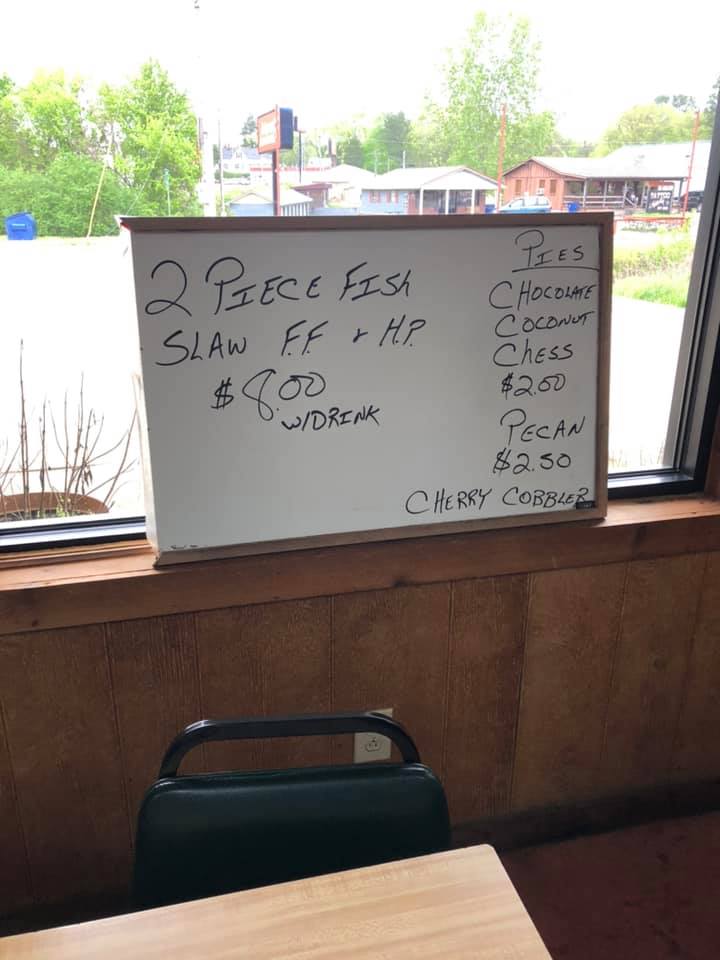 2 PIECE FISH
SLAW F.F & H.P.
$8.00
W/DRINK
PIES
CHOCOLATE
COCONUT
CHESS
$2.00
PECAN
$2.50
CHERRY COBBLER
TATTOO